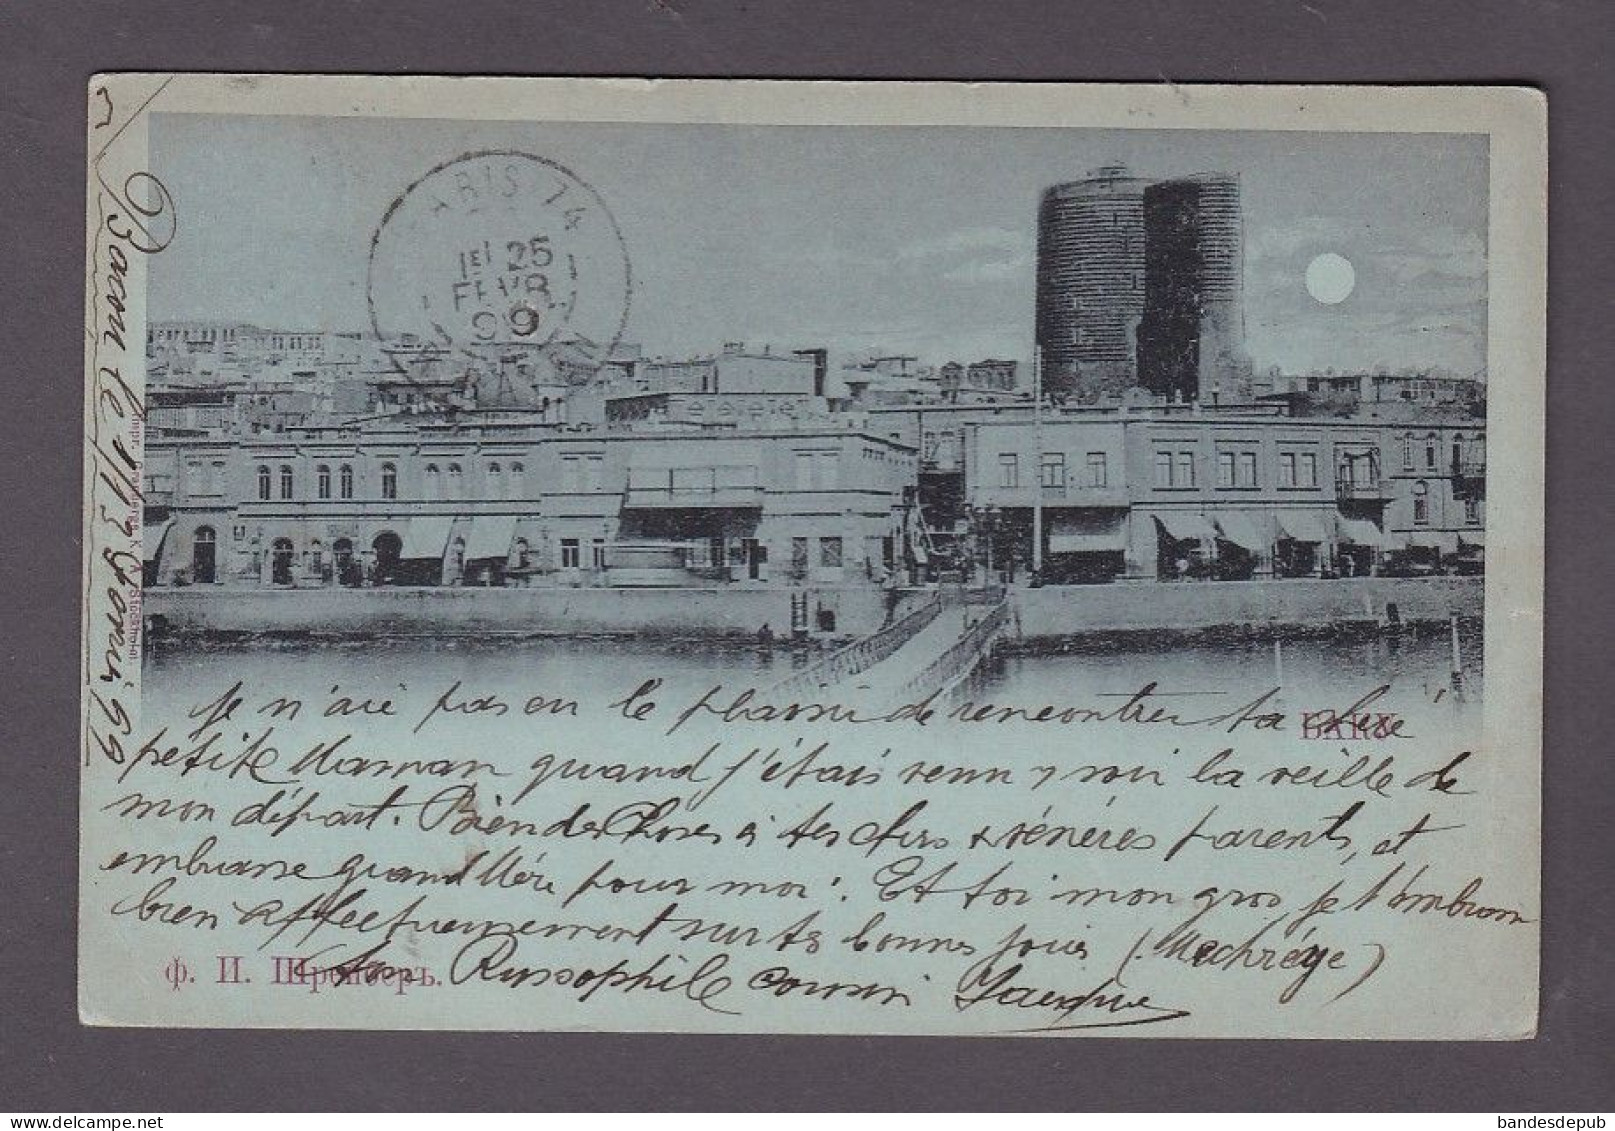 Bacou le 1/13 février 99
PARIS 74
1E 25
FEVR
99
Impr. Granbergs K. A. Stockholm.
BAKU
Je n'ai pas eu le plaisir de rencontrer ta chère
petite Maman quand j'étais venu y voir la veille de
mon départ. Bien des choses à tes chers & vénérés parents, et
embrasse grand Mère pour moi. Et toi mon gros je t'embrasse
bien affectueusement sur tes bonnes joues (Machréye)
Ф. И. Шрейберъ.
Ton Russophile cousin Jacque
bandesdepub